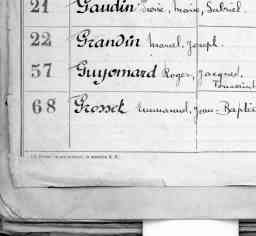 21 Gaudin Pierre, Marie, Gabriel.
22 Grandin Marcel, Joseph.
57 Guyomard Roger, Jacques,
Toussaint
68 Grosset Emmanuel, Jean-Baptis